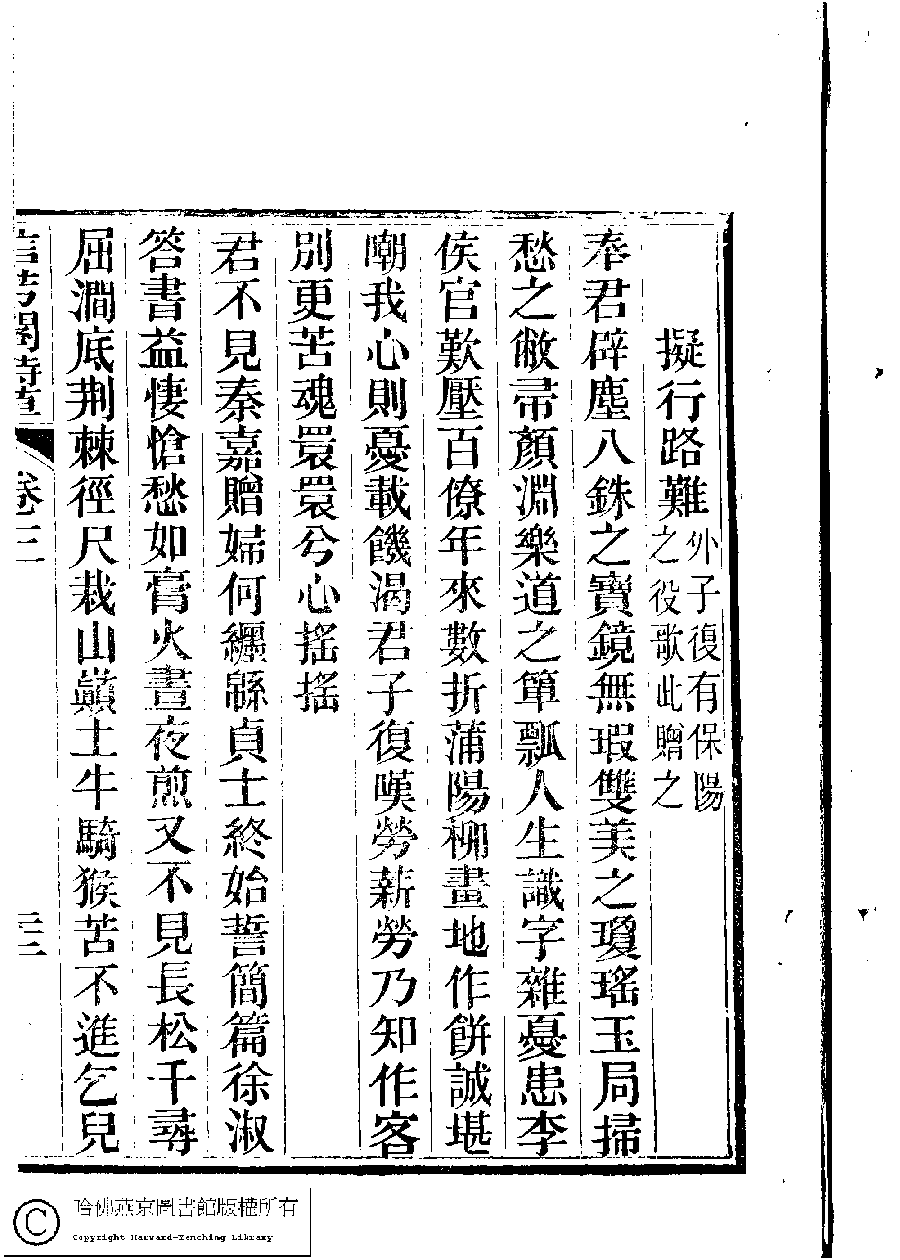 擬行路難外子復有保陽之役歌此贈之
奉君辟塵八銖之寶鏡無瑕雙美之瓊瑤玉局掃
愁之敝帚顏淵樂道之簞瓢人生識字雜憂患李
侯官歎壓百僚年來數折蒲陽柳畫地作餅誠堪
嘲我心則憂載饑渴君子復嘆勞薪勞乃知作客
別更苦魂睘睘兮心搖搖
君不見秦嘉贈婦何纏緜貞士終始誓簡篇徐淑
答書益悽愴愁如膏火晝夜煎又不見長松千尋
屈澗底荆棘徑尺栽山巔土牛騎猴苦不進乞兒
卷三
哈佛燕京圖書館版權所有
Copyright Harvard-Yenching Library